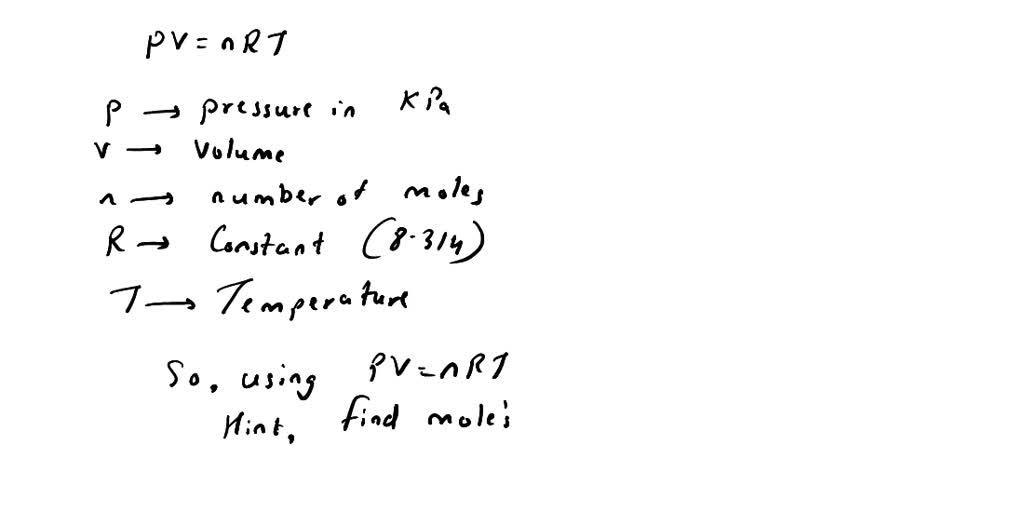 PV = nRT
P → pressure in KPa
V → Volume
n → number of moles
R → Constant (8.314)
T → Temperature
So, using PV = nRT
Hint, find mole's